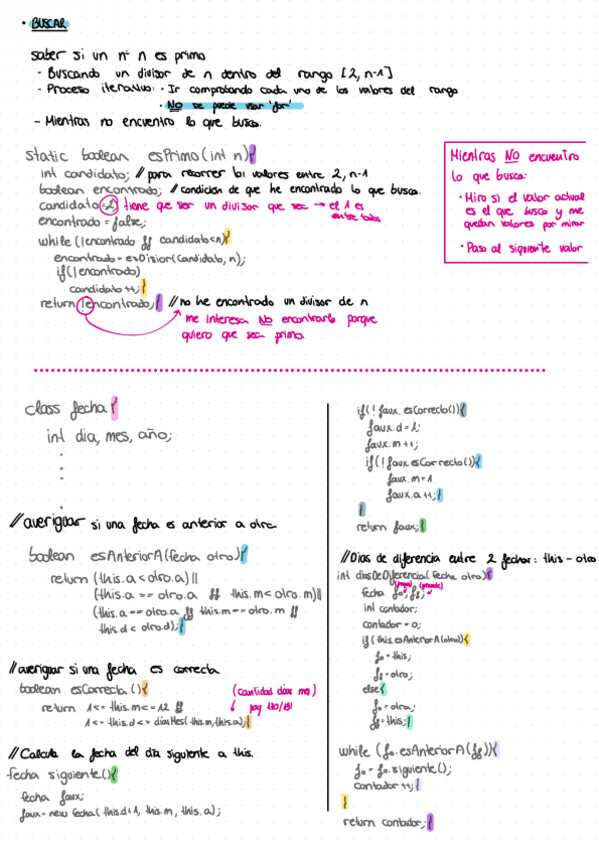 • BUSCAR
saber si un nº n es primo
- Buscando un divisor de n dentro del rango [2, n-1]
- Proceso iterativo: • Ir comprobando cada uno de los valores del rango
• NO se puede usar 'for'
- Mientras no encuentro lo que busco.
static boolean esPrimo(int n){
int candidato; // para recorrer los valores entre 2, n-1
boolean encontrado; // condicion de que he encontrado lo que busco.
candidato=2; tiene que ser un divisor que sea → el 1 es
entre todos
encontrado = false;
while (!encontrado && candidato<n){
encontrado = esDivisor(candidato, n);
if(!encontrado)
candidato ++; }
return !encontrado; } // no he encontrado un divisor de n
me interesa NO encontrarlo porque
quiero que sea primo.
Mientras NO encuentro
lo que busco:
• Miro si el valor actual
es el que busco y me
quedan valores por mirar
• Paso al siguiente valor
class fecha{
int dia, mes, año;
// averiguar si una fecha es anterior a otra
boolean esAnteriorA(fecha otro){
return (this.a < otro.a) ||
(this.a == otro.a && this.m < otro.m) ||
(this.a == otro.a && this.m == otro.m &&
this.d < otro.d); }
// averiguar si una fecha es correcta
boolean esCorrecta (){
return 1<= this.m <= 12 &&
1<= this.d <= diasMes(this.m, this.a); }
(cantidad dias mes)
↓ pag 130/131
// Calcula la fecha del día siguiente a this.
fecha siguiente(){
fecha faux;
faux = new fecha( this.d+1, this.m, this.a);
if( ! faux.esCorrecto()){
faux.d = 1;
faux.m ++;
if(!faux.esCorrecto()){
faux.m = 1
faux.a ++; }
}
return faux; }
// Dias de diferencia entre 2 fechas: this - otro
int diasDeDiferencia( fecha otro){
fecha f0, ff;
(peque) (grande)
int contador;
contador = 0;
if (this.esAnteriorA(otro)){
f0 = this;
ff = otro;
else{
f0 = otro;
ff = this; }
while (f0.esAnteriorA(ff)){
f0 = f0.siguiente();
contador ++; }
}
return contador; }